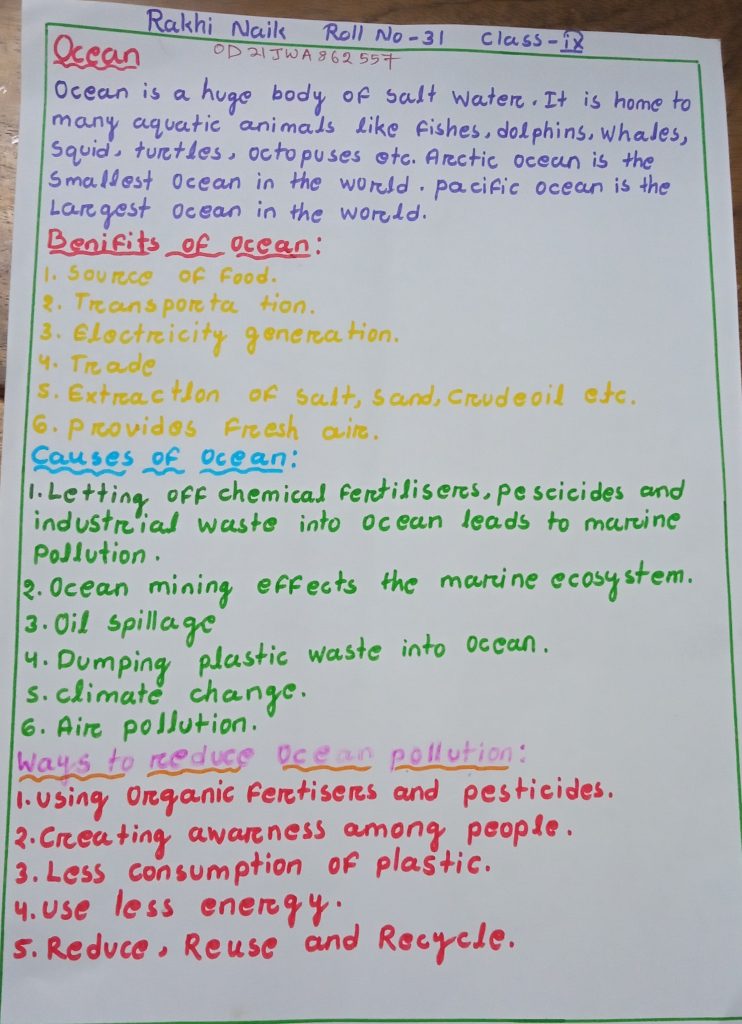 Rakhi Naik Roll No-31 Class-IX
OD21JWA862557
Ocean
Ocean is a huge body of salt water. It is home to
many aquatic animals like fishes, dolphins, whales,
squid, turtles, octopuses etc. Arctic ocean is the
Smallest ocean in the world. pacific ocean is the
Largest ocean in the world.
Benifits of ocean:
1. Source of Food.
2. Transporta tion.
3. Electricity generation.
4. Trade
5. Extraction of salt, sand, crudeoil etc.
6. provides Fresh air.
Causes of ocean:
1. Letting off chemical fertilisers, pescicides and
industrial waste into ocean leads to marine
pollution.
2. Ocean mining effects the marine ecosystem.
3. Oil spillage
4. Dumping plastic waste into ocean.
5. climate change.
6. Air pollution.
Ways to reduce ocean pollution:
1. using organic fertisers and pesticides.
2. Creating awarness among people.
3. Less consumption of plastic.
4. use less energy.
5. Reduce, Reuse and Recycle.